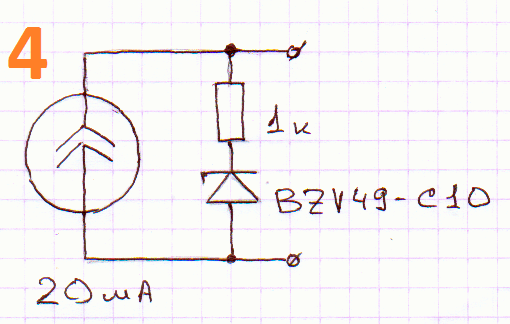 4
1k
BZV49-C10
20mA